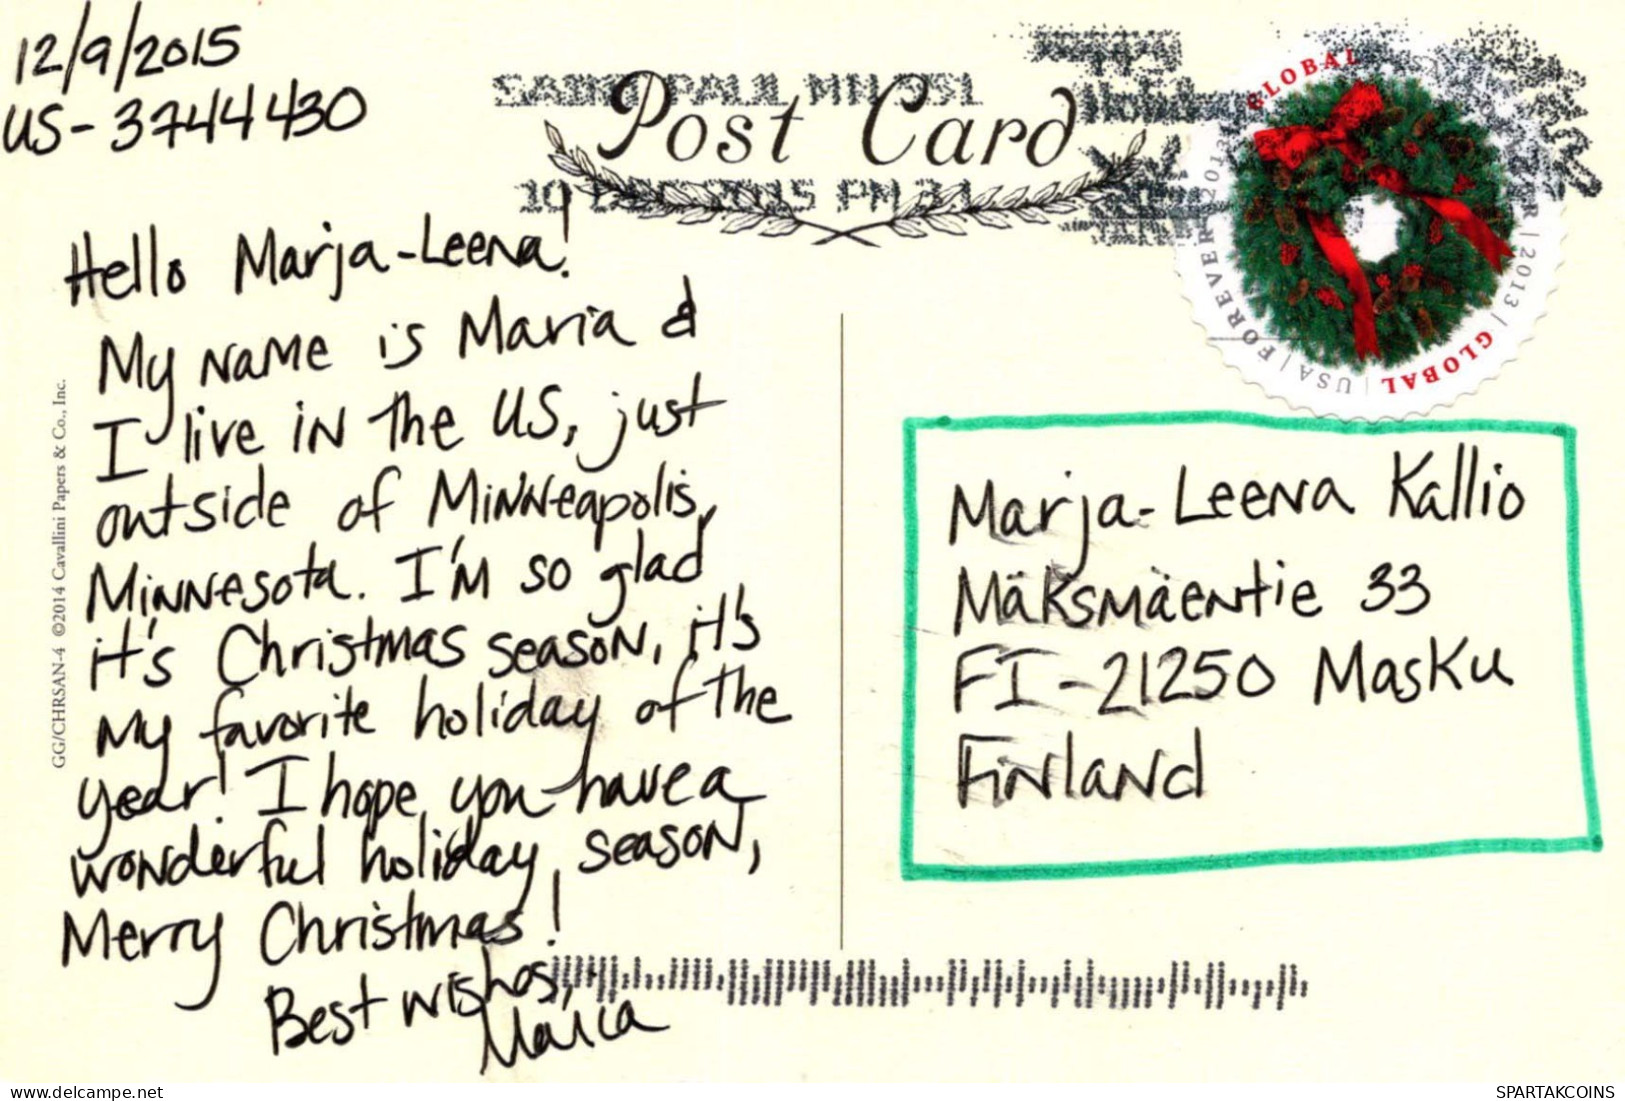 12/9/2015
US-3744430
SAINT PAUL MN 551
10 DEC 2015 PM 3 L
Post Card
GLOBAL
FOREVER | 2013 | GLOBAL | USA | FOREVER 2013
Hello Marja-Leena!
My name is Maria &
I live in the US, just
outside of Minneapolis,
Minnesota. I'm so glad
it's Christmas season, it's
my favorite holiday of the
year! I hope you have a
wonderful holiday season,
Merry Christmas!
Best wishes,
Maria
GG/CHRSAN-4 ©2014 Cavallini Papers & Co., Inc.
Marja-Leena Kallio
Mäksmäentie 33
FI-21250 Masku
Finland
www.delcampe.net
SPARTAKCOINS